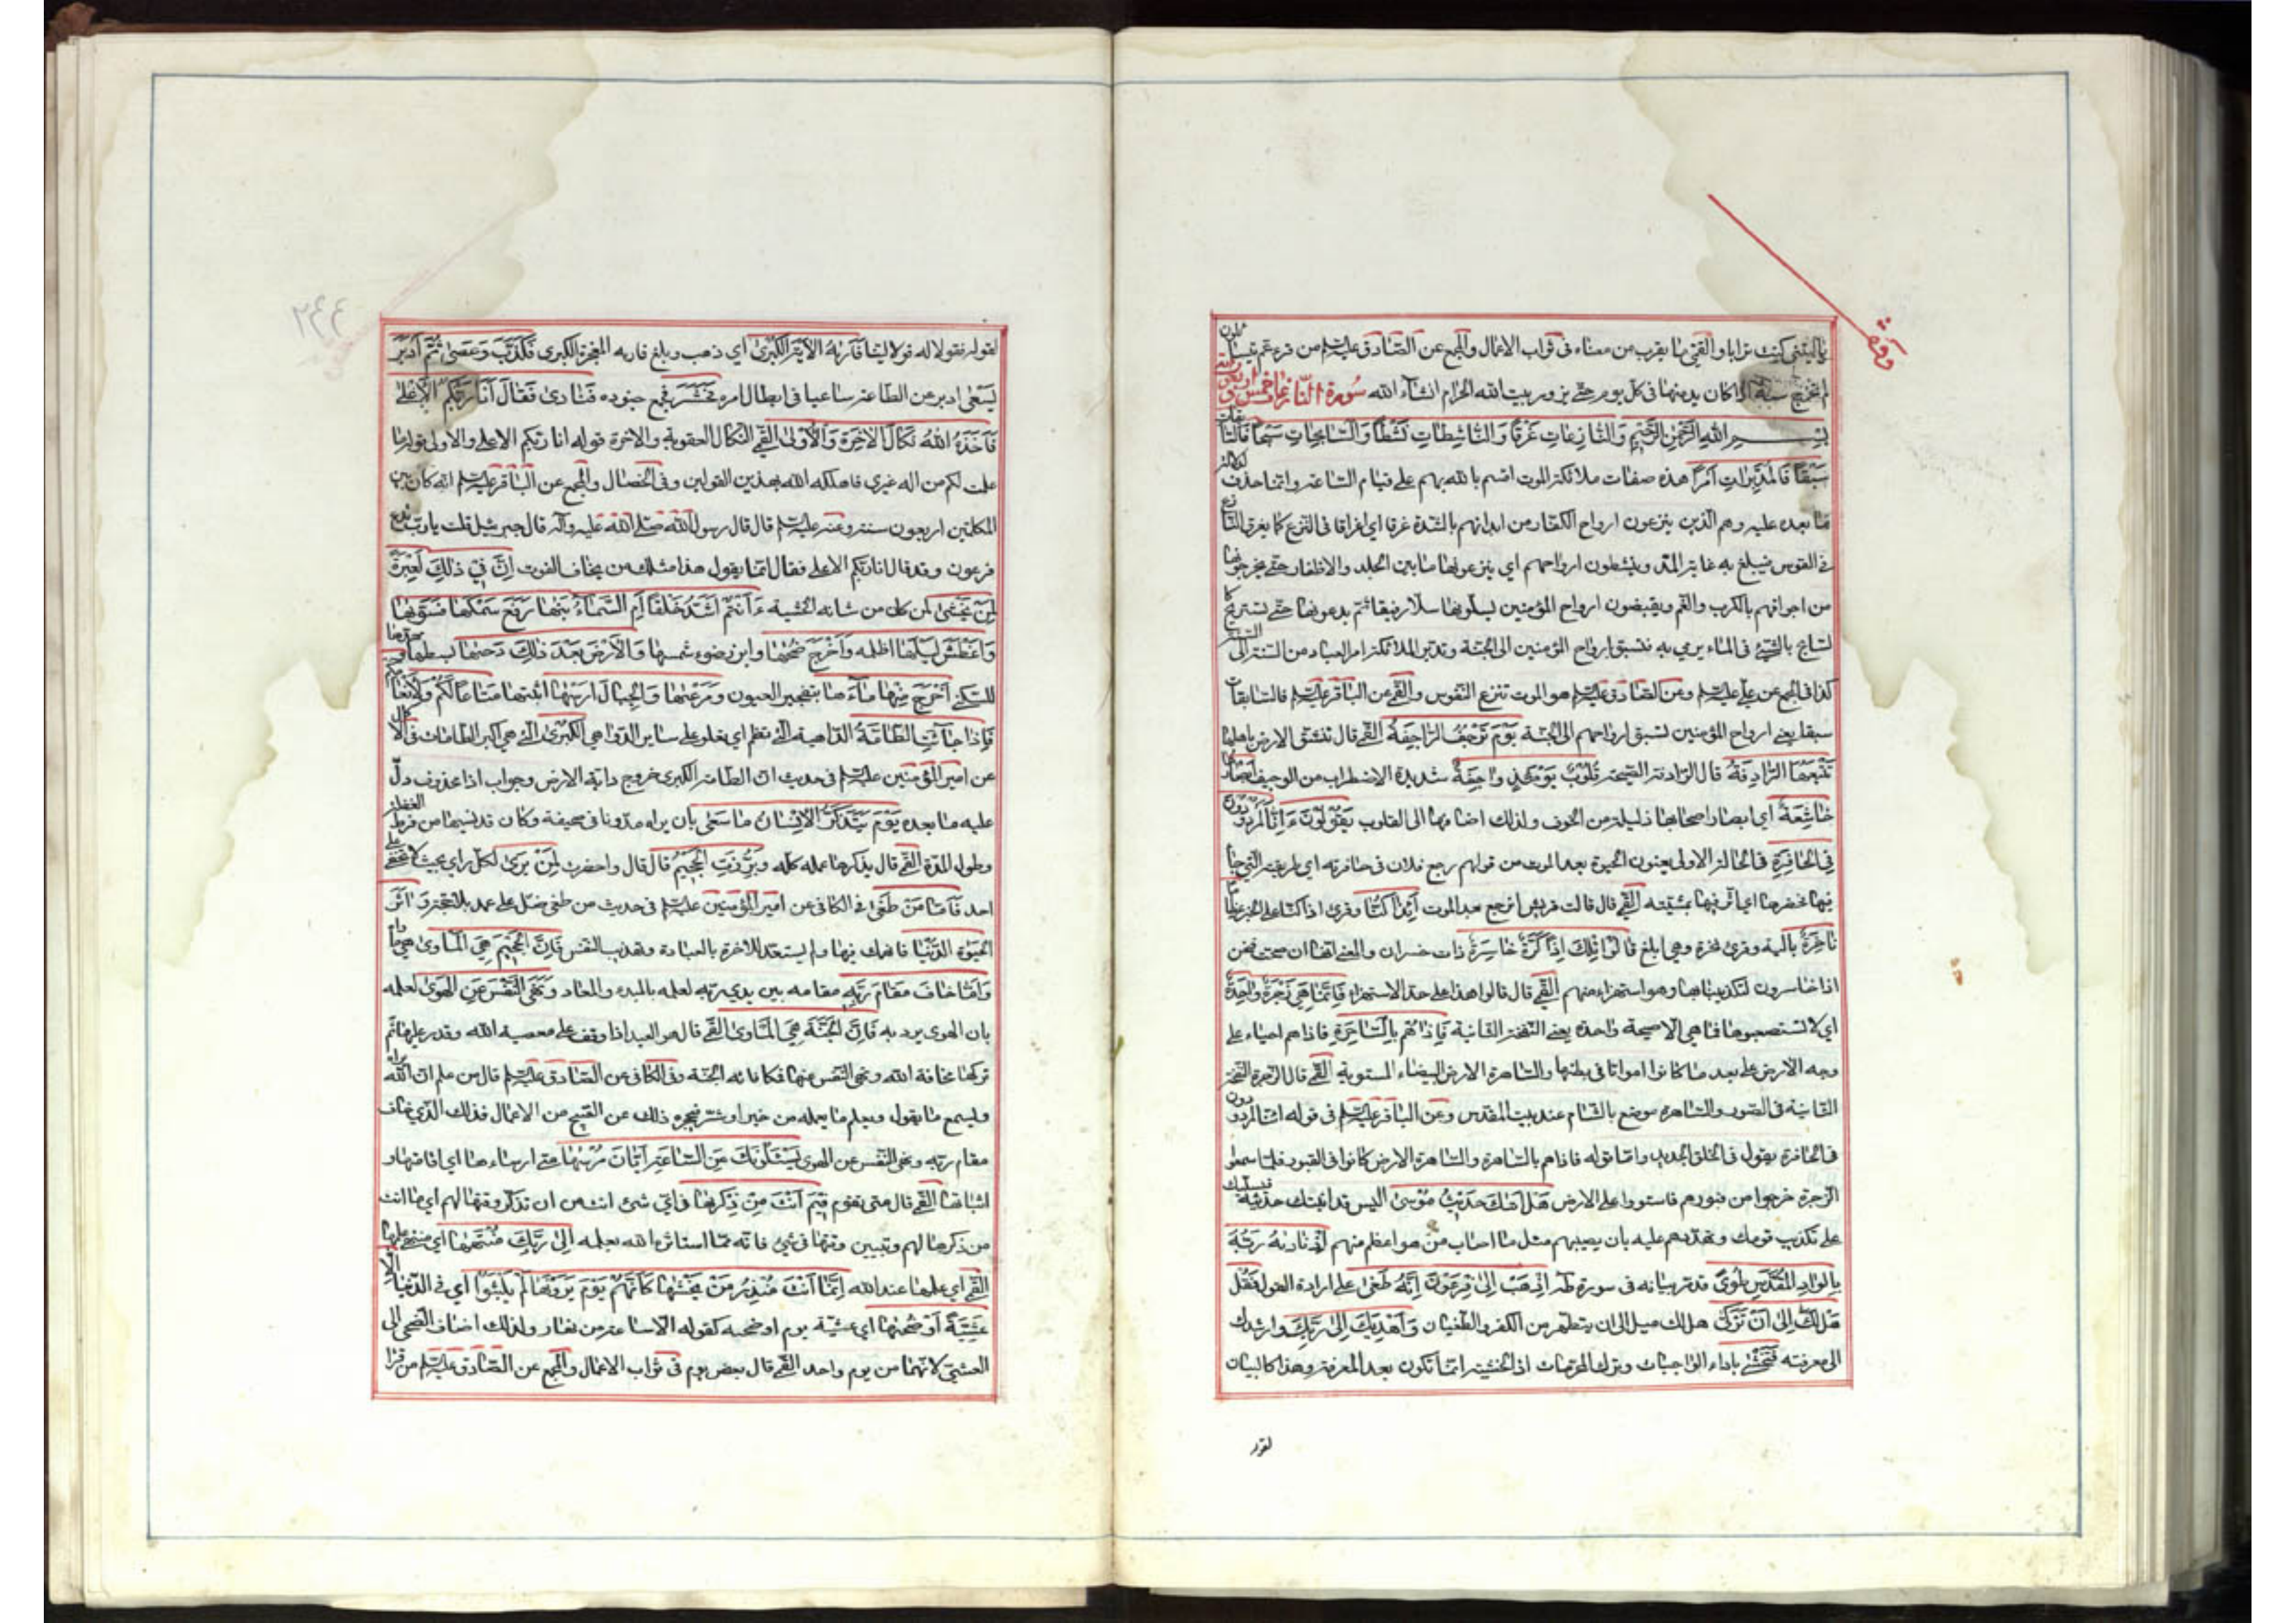 يا ليتني كنت ترابا والقمي ما يقرب من معناه في ثواب الاعمال والمجمع عن الصادق عليه السلم من قرء عم يتسائلون
لم تخرج سنة اذا كان يدمنها في كل يوم حتى يزور بيت الله الحرام انشاء الله سورة النازعات خمس او ست واربعون اية
بسم الله الرحمن الرحيم وَالنَّازِعَاتِ غَرْقًا وَالنَّاشِطَاتِ نَشْطًا وَالسَّابِحَاتِ سَبْحًا فَالسَّابِقَاتِ
سَبْقًا فَالْمُدَبِّرَاتِ أَمْرًا هذه صفات ملائكة الموت اقسم بالله بهم على قيام الساعة وانما حذف لدلالة
ما بعده عليه وهم الذين ينزعون ارواح الكفار من ابدانهم بالشدة غرقا اي اغراقا في النزع كما يغرق النازع
في القوس فيبلغ به غاية المد وينشطون ارواحهم اي ينزعونها ما بين الجلد والاظفار حتى يخرجونها
من اجوافهم بالكرب والغم ويقبضون ارواح المؤمنين يسلونها سلا رفيقا ثم يدعونها حتى تستريح كا
لسابح بالشيء في الماء يرمي به فتسبق ارواح المؤمنين الى الجنة وتدبر الملائكة امر العباد من السنة الى السنة
كذا في المجمع عن علي عليه السلم وعن الصادق عليه السلم هو الموت تنزع النفوس والقمي عن الباقر عليه السلم فالسابقات
سبقا يعني ارواح المؤمنين تسبق ارواحهم الى الجنة يَوْمَ تَرْجُفُ الرَّاجِفَةُ القمي قال تنشق الارض باهلها
تَتْبَعُهَا الرَّادِفَةُ قال الرادفة الصيحة قُلُوبٌ يَوْمَئِذٍ وَاجِفَةٌ شديدة الاضطراب من الوجيف أَبْصَارُهَا
خَاشِعَةٌ اي ابصار اصحابها ذليلة من الخوف ولذلك اضافها الى القلوب يَقُولُونَ ءَإِنَّا لَمَرْدُودُونَ
فِي الْحَافِرَةِ في الحالة الاولى يعنون الحيوة بعد الموت من قولهم رجع فلان في حافرته اي طريقته التي جاء
فيها فحفرها اي اثر فيها بمشيته القمي قال قالت قريش انرجع بعد الموت أَئِذَا كُنَّا وقرئ اذا كنا على الخبر عِظَامًا
نَاخِرَةً بالية وقرئ نخرة وهي ابلغ قَالُوا تِلْكَ إِذًا كَرَّةٌ خَاسِرَةٌ ذات خسران والمعنى انها ان صحت فنحن
اذا خاسرون لتكذيبنا بها وهو استهزاء منهم القمي قال قالوا هذا على حد الاستهزاء فَإِنَّمَا هِيَ زَجْرَةٌ وَاحِدَةٌ
اي لا تستصعبوها فما هي الا صيحة واحدة يعني النفخة الثانية فَإِذَا هُمْ بِالسَّاهِرَةِ فاذا هم احياء على
وجه الارض على بعد ما كانوا امواتا في بطنها والساهرة الارض البيضاء المستوية القمي قال الزجرة النفخة
الثانية في الصور والساهرة موضع بالشام عند بيت المقدس وعن الباقر عليه السلم في قوله ائنا لمردودون
في الحافرة يقول في الخلق الجديد واما قوله فاذا هم بالساهرة والساهرة الارض كانوا في القبور فلما سمعوا
الزجرة خرجوا من قبورهم فاستووا على الارض هَلْ أَتَاكَ حَدِيثُ مُوسَى اليس قد اتيتك حديثه فيسليك
على تكذيب قومك وتهددهم عليه بان يصيبهم مثل ما اصاب من هو اعظم منهم إِذْ نَادَاهُ رَبُّهُ
بِالْوَادِ الْمُقَدَّسِ طُوًى قد مر بيانه في سورة طه اذْهَبْ إِلَى فِرْعَوْنَ إِنَّهُ طَغَى على ارادة القول فَقُلْ
هَلْ لَكَ إِلَى أَنْ تَزَكَّى هل لك ميل الى ان يتطهر من الكفر والطغيان وَأَهْدِيَكَ إِلَى رَبِّكَ وارشدك
الى معرفته فَتَخْشَى باداء الواجبات وترك المحرمات اذ الخشية انما تكون بعد المعرفة وهذا كالبيان
لقوله
لقوله فقولا له قولا لينا فَأَرَاهُ الْآيَةَ الْكُبْرَى اي ذهب وبلغ فاريه المعجزة الكبرى فَكَذَّبَ وَعَصَى ثُمَّ أَدْبَرَ
يَسْعَى ادبر عن الطاعة ساعيا في ابطال امره فَحَشَرَ فجمع جنوده فَنَادَى فَقَالَ أَنَا رَبُّكُمُ الْأَعْلَى
فَأَخَذَهُ اللَّهُ نَكَالَ الْآخِرَةِ وَالْأُولَى القمي النكال العقوبة والاخرة قوله انا ربكم الاعلى والاولى قوله ما
علمت لكم من اله غيري فاهلكه الله بهذين القولين وفي الخصال والمجمع عن الباقر عليه السلم انه كان بين
الكلمتين اربعون سنة وعنه عليه السلم قال قال رسول الله صلى الله عليه واله قال جبرئيل قلت يا رب تدع
فرعون وقد قال انا ربكم الاعلى فقال انما يقول هذا مثلك من يخاف الفوت إِنَّ فِي ذَلِكَ لَعِبْرَةً
لِمَنْ يَخْشَى لمن كان من شانه الخشية ءَأَنْتُمْ أَشَدُّ خَلْقًا أَمِ السَّمَاءُ بَنَاهَا رَفَعَ سَمْكَهَا فَسَوَّاهَا
وَأَغْطَشَ لَيْلَهَا اظلمه وَأَخْرَجَ ضُحَاهَا وابرز ضوء شمسها وَالْأَرْضَ بَعْدَ ذَلِكَ دَحَاهَا بسطها ومهدها
للسكنى أَخْرَجَ مِنْهَا مَاءَهَا بتفجير العيون وَمَرْعَاهَا وَالْجِبَالَ أَرْسَاهَا اثبتها مَتَاعًا لَكُمْ وَلِأَنْعَامِكُمْ
فَإِذَا جَاءَتِ الطَّامَّةُ الداهية التي تطم اي تعلو على ساير الدواهي الْكُبْرَى التي هي اكبر الطامات في الاكمال
عن امير المؤمنين عليه السلم في حديث ان الطامة الكبرى خروج دابة الارض وجواب اذا محذوف دل
عليه ما بعده يَوْمَ يَتَذَكَّرُ الْإِنْسَانُ مَا سَعَى بان يراه مدونا في صحيفة وكان قد نسيها من فرط الغفلة
وطول المدة القمي قال يذكر ما عمله كله وَبُرِّزَتِ الْجَحِيمُ قال قال واحضرت لِمَنْ يَرَى لكل راي بحيث لا تخفى على
احد فَأَمَّا مَنْ طَغَى في الكافي عن امير المؤمنين عليه السلم في حديث من طغى ضل على عمد بلا حجة وَآثَرَ
الْحَيَوةَ الدُّنْيَا فانهمك فيها ولم يستعد للاخرة بالعبادة وتهذيب النفس فَإِنَّ الْجَحِيمَ هِيَ الْمَأْوَى هي ماواه
وَأَمَّا مَنْ خَافَ مَقَامَ رَبِّهِ مقامه بين يدي ربه لعلمه بالمبدء والمعاد وَنَهَى النَّفْسَ عَنِ الْهَوَى لعلمه
بان الهوى يرديه فَإِنَّ الْجَنَّةَ هِيَ الْمَأْوَى القمي قال هو العبد اذا وقف على معصية الله وقدر عليها ثم
تركها مخافة الله ونهى النفس عنها فمكافاته الجنة وفي الكافي عن الصادق عليه السلم قال من علم ان الله يراه
ويسمع ما يقول ويعلم ما يعمله من خير او شر فيحجزه ذلك عن القبيح من الاعمال فذلك الذي خاف
مقام ربه ونهى النفس عن الهوى يَسْئَلُونَكَ عَنِ السَّاعَةِ أَيَّانَ مُرْسَاهَا متى ارساءها اي اقامتها و
اثباتها القمي قال متى تقوم فِيمَ أَنْتَ مِنْ ذِكْرَاهَا في اي شيء انت من ان تذكر وقتها لهم اي ما انت
من ذكرها لهم وتبيين وقتها في شيء فانه مما استاثره الله بعلمه إِلَى رَبِّكَ مُنْتَهَاهَا اي منتهى علمها
القمي اي علمها عند الله إِنَّمَا أَنْتَ مُنْذِرُ مَنْ يَخْشَاهَا كَأَنَّهُمْ يَوْمَ يَرَوْنَهَا لَمْ يَلْبَثُوا اي في الدنيا إِلَّا
عَشِيَّةً أَوْ ضُحَاهَا اي عشية يوم او ضحيه كقوله الا ساعة من نهار ولذلك اضاف الضحى الى
العشي لانهما من يوم واحد القمي قال بعض يوم في ثواب الاعمال والمجمع عن الصادق عليه السلم من قرأ
٢٤٤